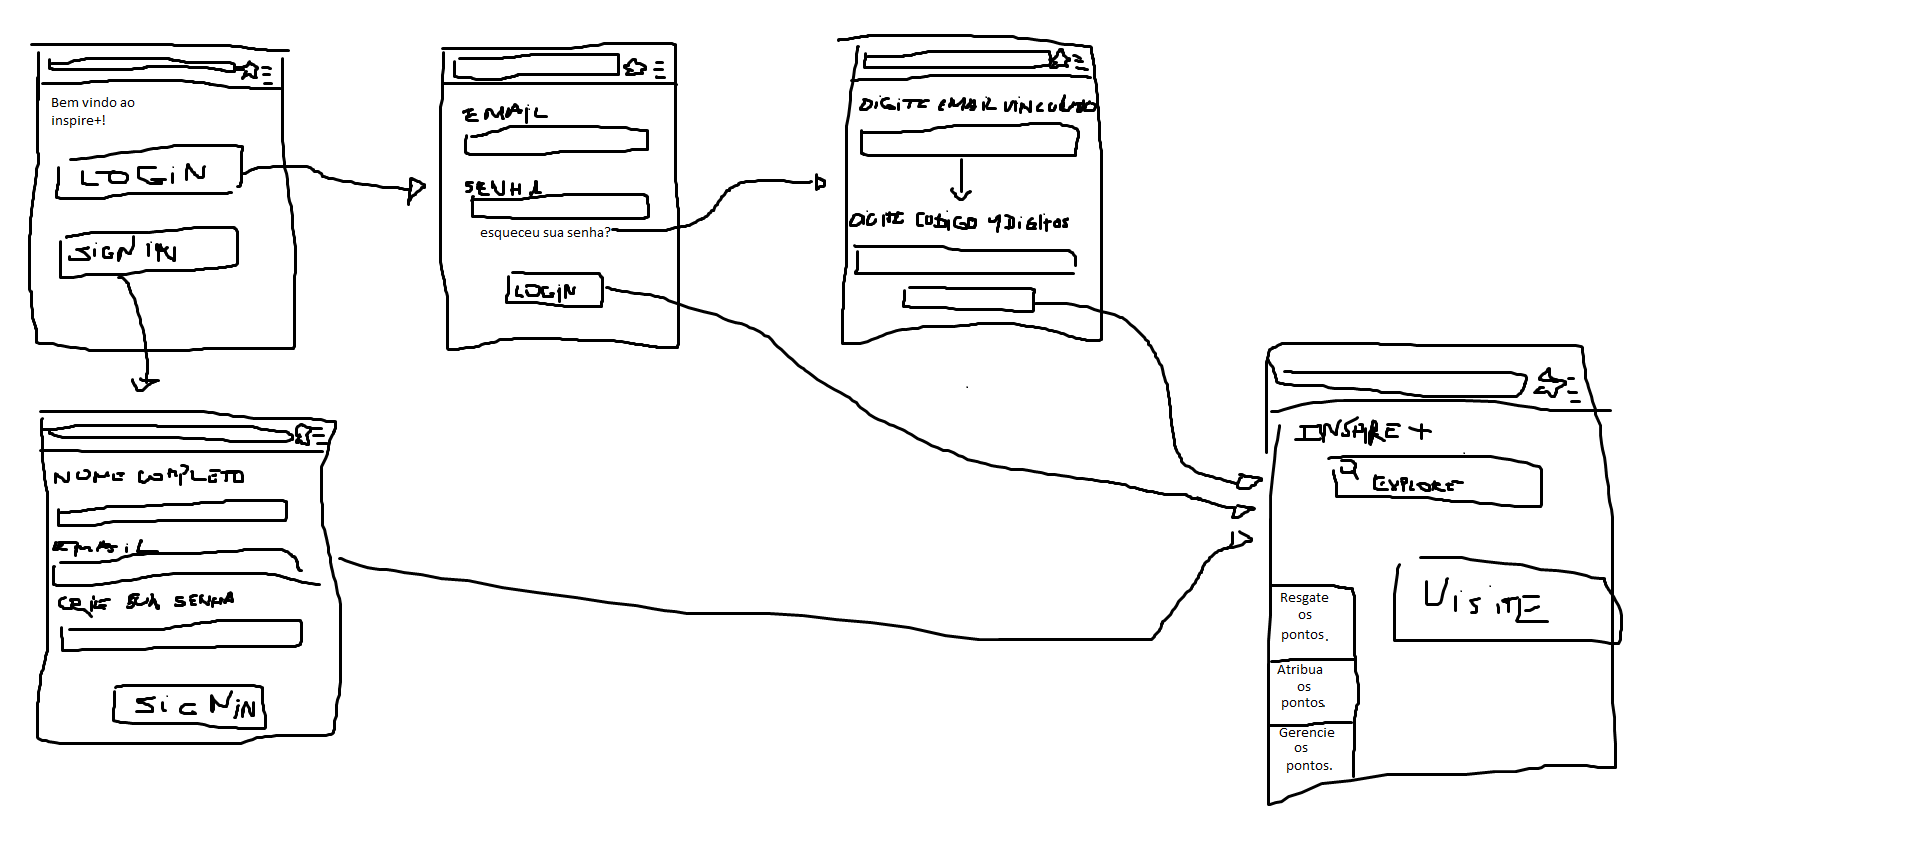 Bem vindo ao
inspire+!
LOGIN
SIGN IN
EMAIL
SENHA
esqueceu sua senha?
LOGIN
DIGITE EMAIL VINCULADO
DIGITE CODIGO 4 DIGITOS
NOME COMPLETO
EMAIL
CRIE SUA SENHA
SIGN IN
INSPIRE +
EXPLORE
VISITE
Resgate
os
pontos.
Atribua
os
pontos.
Gerencie
os
pontos.